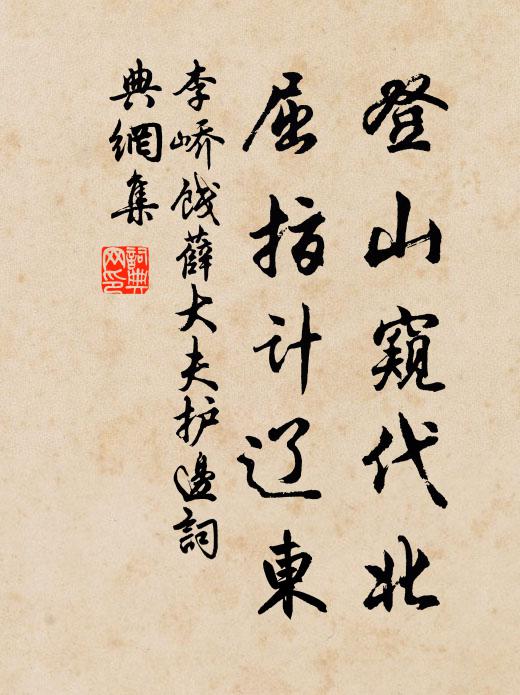 登山窥代北
屈指计辽東
李嶠饯薛大夫护邊詞
典網集
詞典
网印